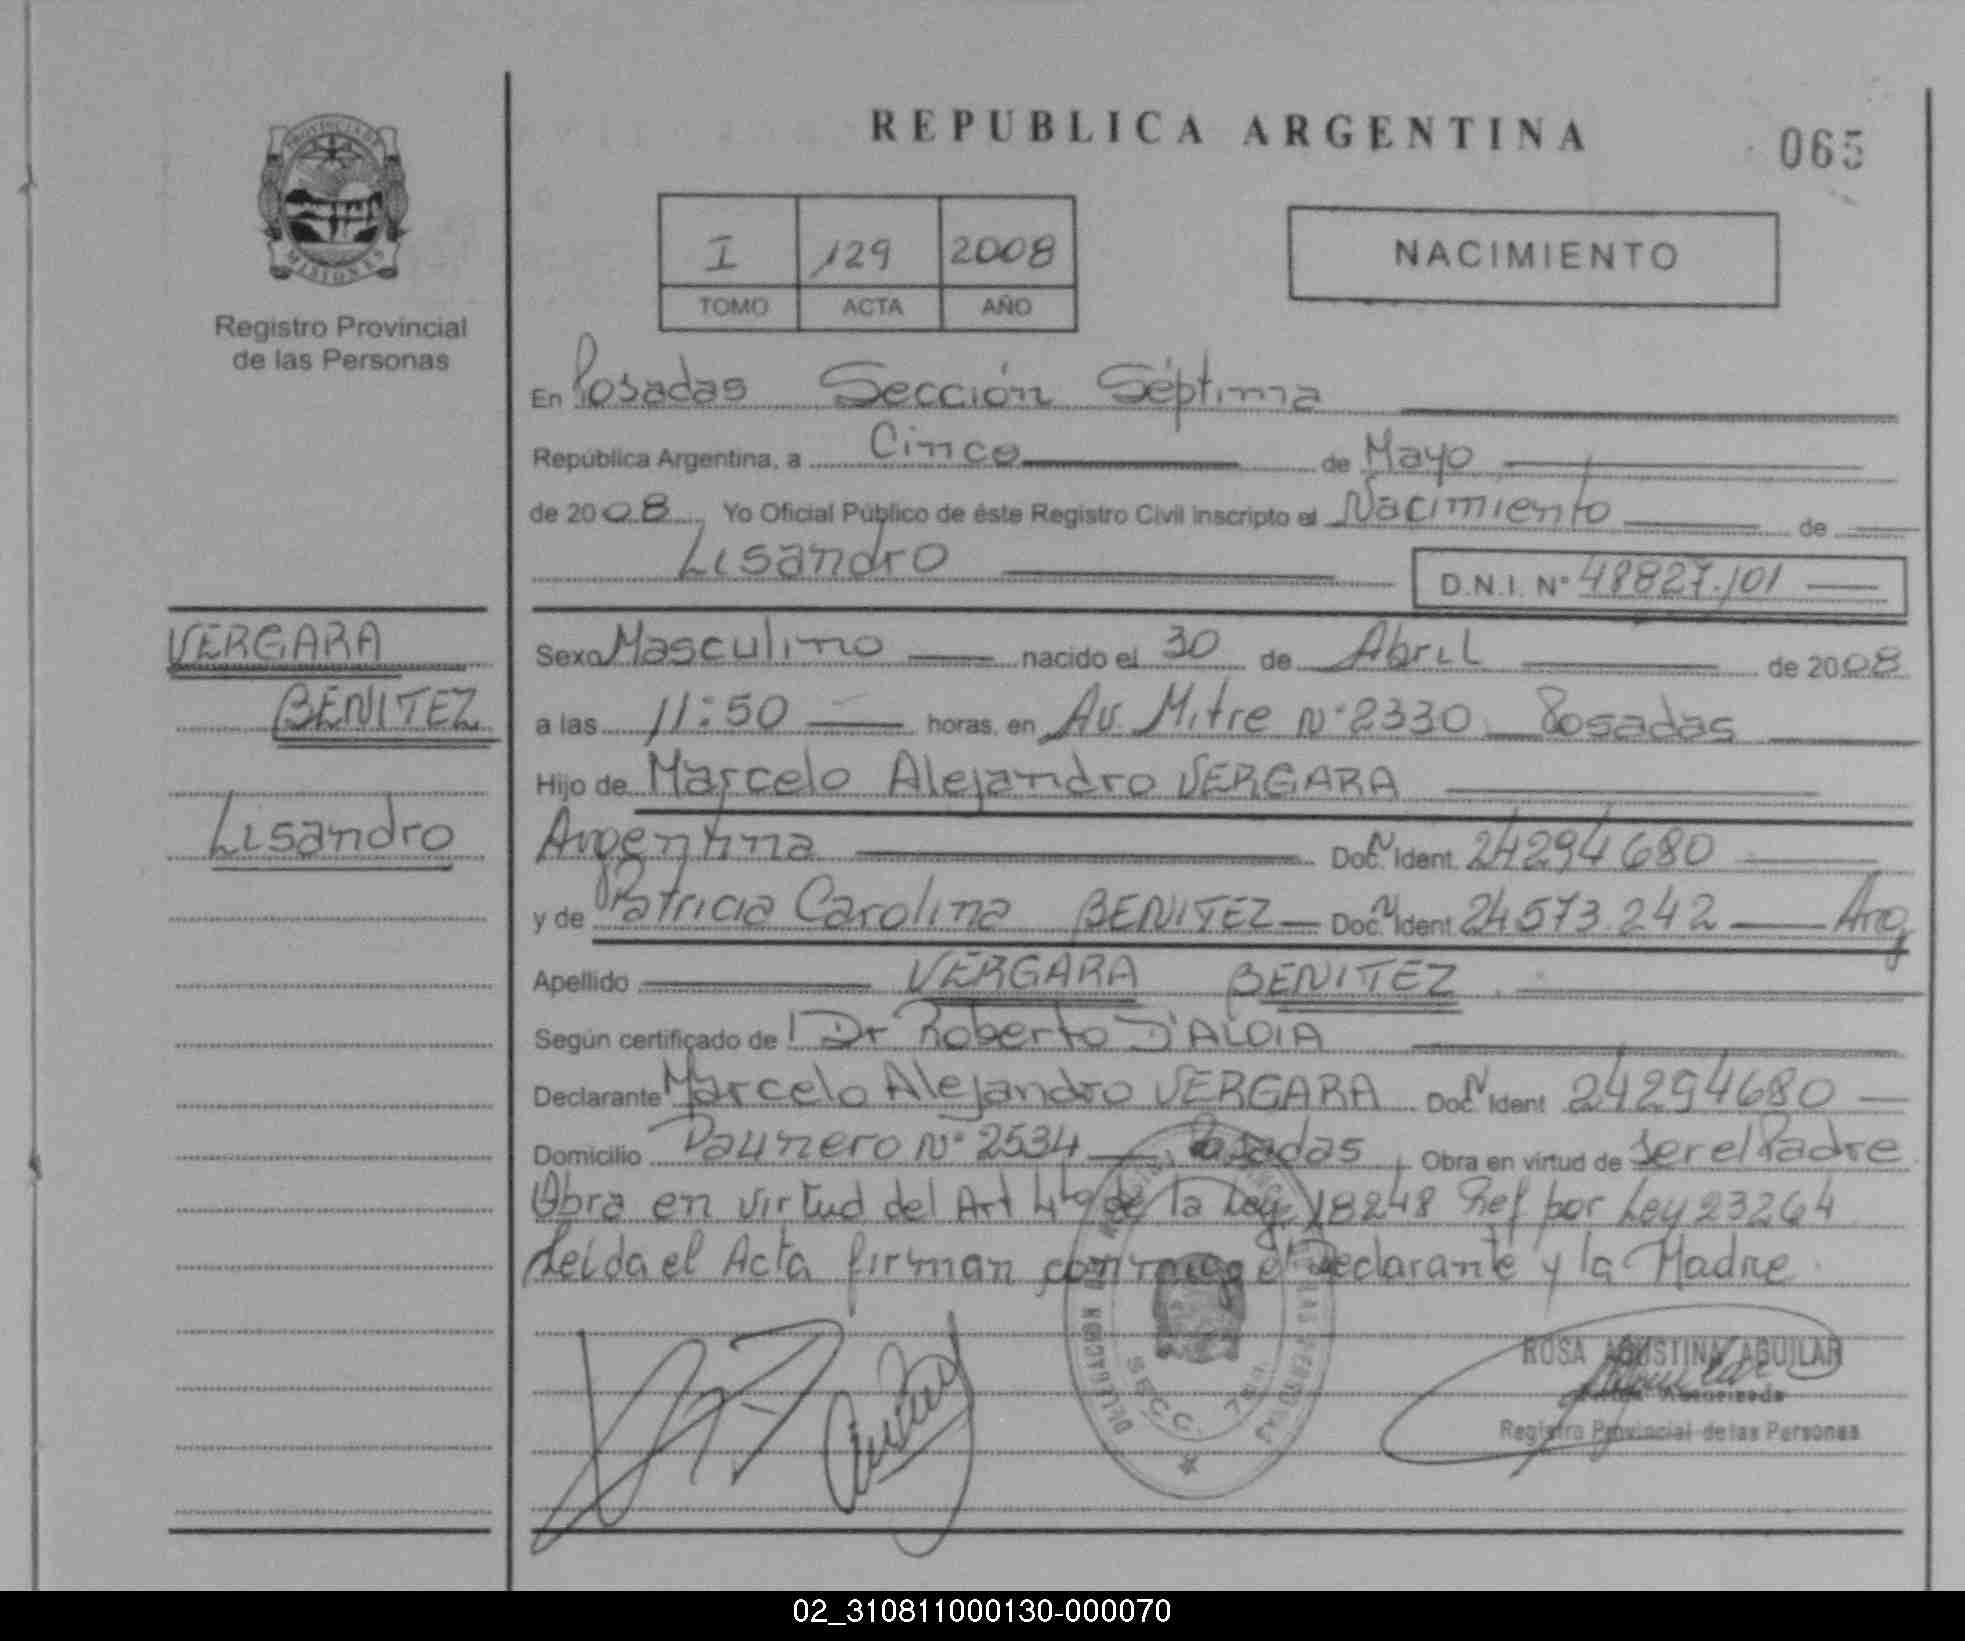 REPUBLICA ARGENTINA
065
PROVINCIA DE
MISIONES
Registro Provincial
de las Personas
I 129 2008
TOMO ACTA AÑO
NACIMIENTO
En Posadas Sección Séptima
República Argentina, a Cinco de Mayo
de 2008 Yo Oficial Público de éste Registro Civil inscripto el Nacimiento de
Lisandro D.N.I. Nº 48827.101
VERGARA
BENITEZ
Lisandro
Sexo Masculino nacido el 30 de Abril de 2008
a las 11:50 horas, en Av. Mitre Nº 2330 Posadas
Hijo de Marcelo Alejandro VERGARA
Argentina Doc. N Ident. 24294680
y de Patricia Carolina BENITEZ Doc. N Ident 24.573.242 Arg
Apellido VERGARA BENITEZ
Según certificado de Dr Roberto D'ALOIA
Declarante Marcelo Alejandro VERGARA Doc N Ident 24294680
Domicilio Paunero Nº 2534 Posadas Obra en virtud de ser el Padre
Obra en virtud del Art 4to de la Ley 18248 Ref por Ley 23264
Leída el Acta firman conmigo el Declarante y la Madre
SECC. 7
ROSA AGUSTINA AGUILAR
Autorizada
Registro Provincial de las Personas
02_310811000130-000070